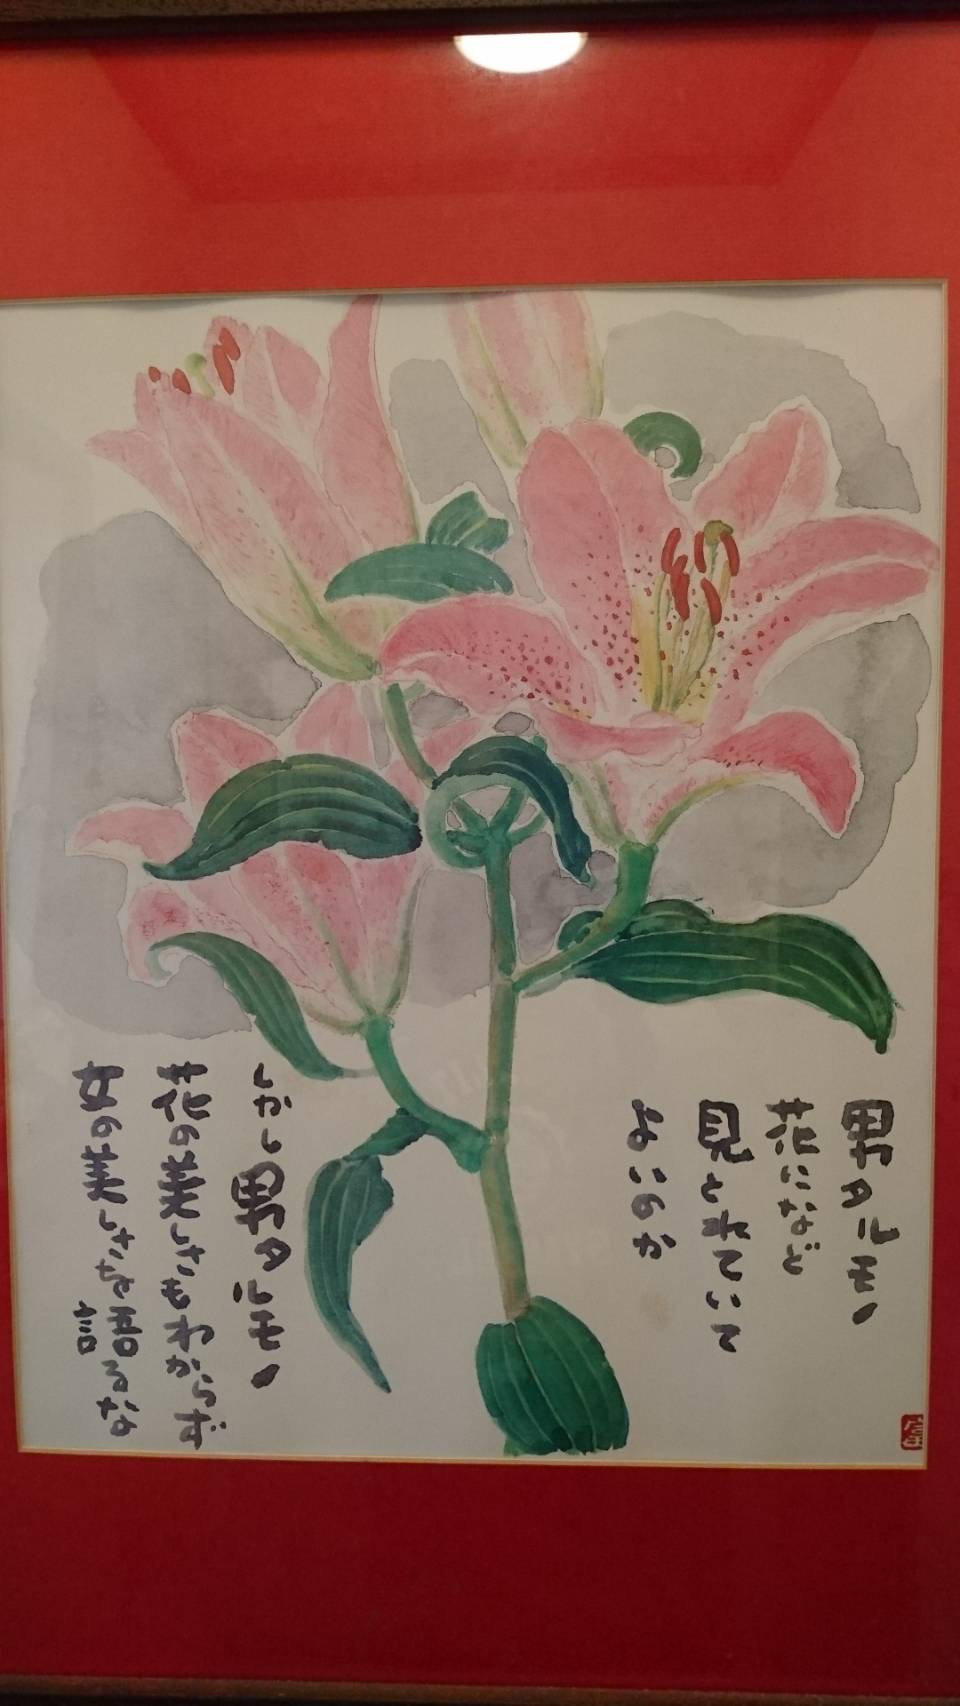 男タルモノ
花になど
見とれていて
よいのか
しかし男タルモノ
花の美しさもわからず
女の美しさを語るな